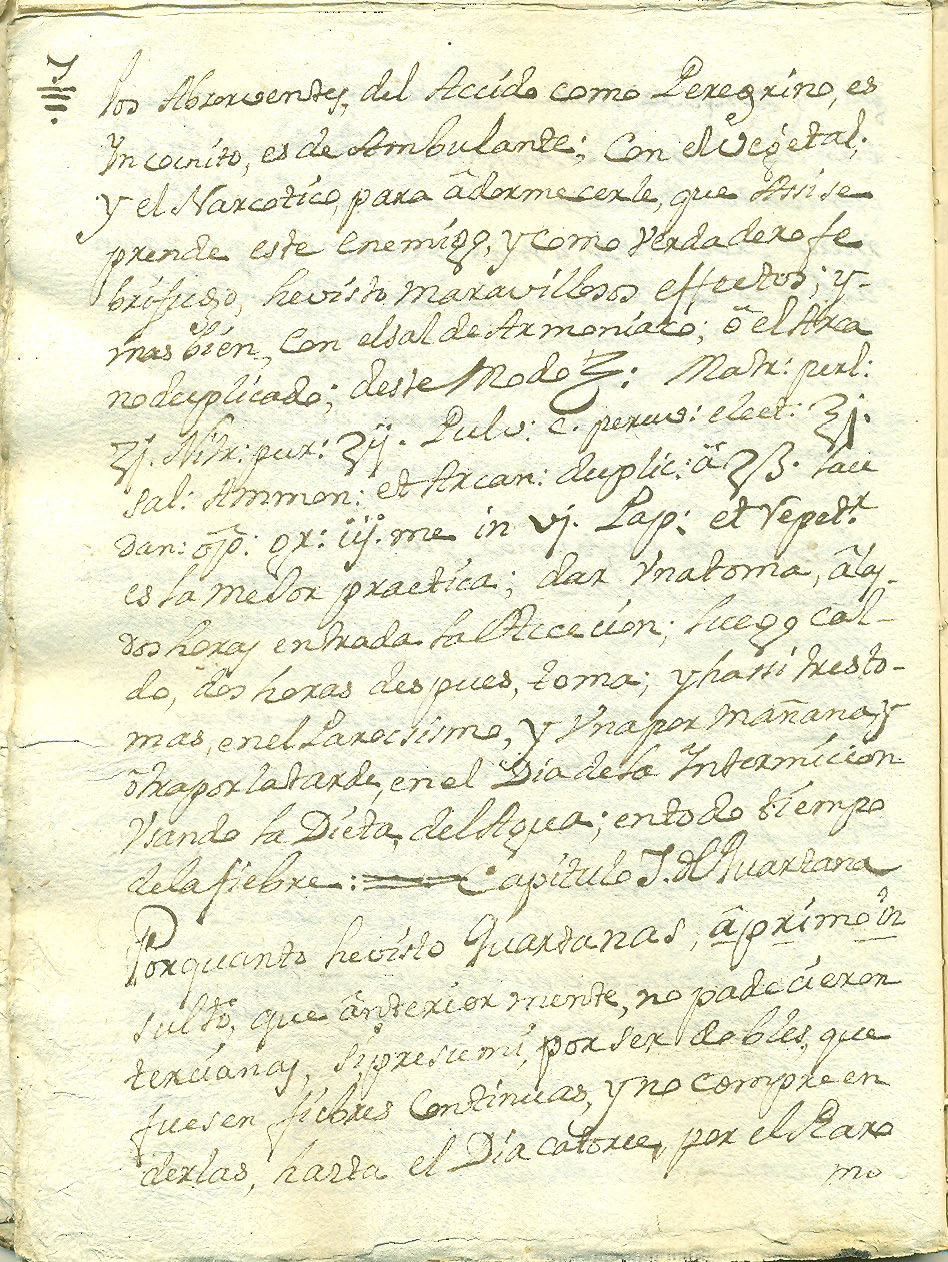 los Absorventes, del Accido como Peregrino, es
Yncocnito, es de Ambulante; Con el Vegetal;
Y el Narcotico, para âdormecerle, que Assi se
prende este Enemigo, y como Verdadero fe
brifugo, he visto maravillosos effectos; y-
mas bien, Con el sal de Armoniaco; ô el Arca
no duplicado; deste Modo Matr: perl:
ʒj. Nitr: pur: ʒij. Pulv: C. peruv: elect: ʒj.
sal: Ammon: et Arcan: duplic: â ʒß. lau
dan: gr: iij. me in vj. Pap: et Repet.
es la mejor practica; dar Vna toma, â las
dos horas entrada la Accecion; luego cal-
do, dos horas despues, toma; y hassi tres to-
mas, en el Parocsismo, y Vna por mañana, y
ôtra por la tarde, en el Dia de la Intermicion
Vsando la Dieta, del Agua; en todo tiempo
de la fiebre: Capitulo J. de Quartana
Por quanto he visto Quartanas, â primo in
sulto, que ânteriormente, no padecieron
tercianas, si presiemi, por ser dobles, que
fuesen fiebres Continuas, y no compreen
derlas, hasta el Dia catorce, por el Raro
mo